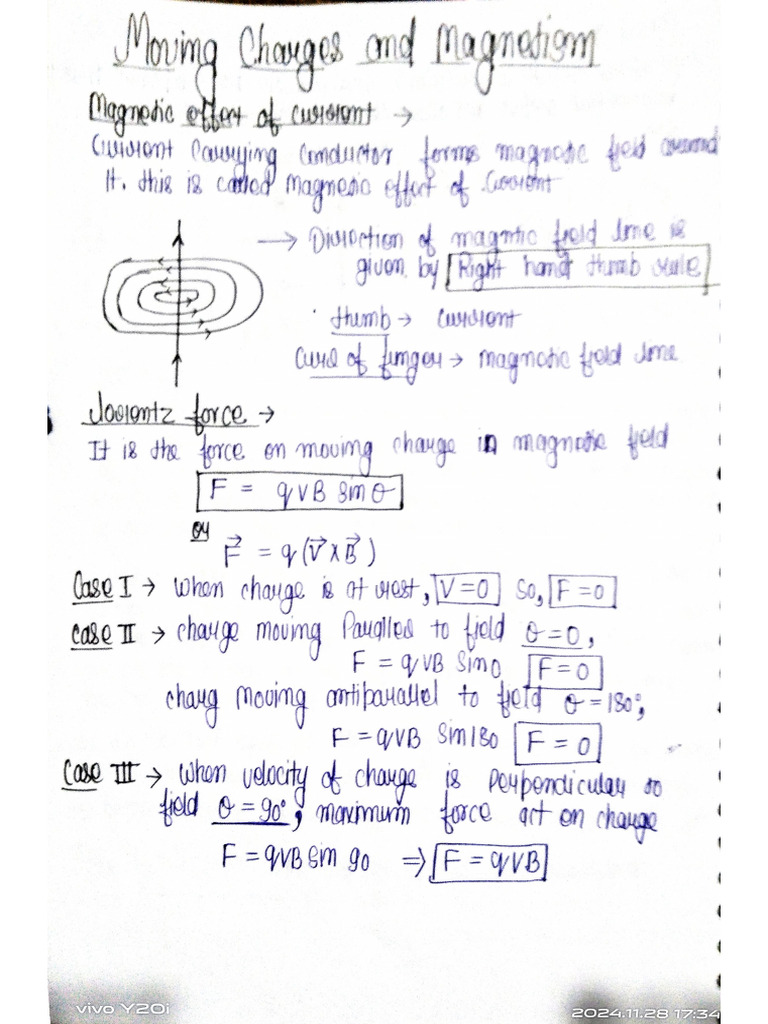 Moving Charges and Magnetism
Magnetic effect of current →
Current Carrying Conductor forms magnetic field around
it. this is called magnetic effect of current
→ Direction of magntic field line is
given by Right hand thumb rule
thumb → current
Curl of finger → magnetic field line
Lorentz force →
It is the force on moving charge in magnetic field
F = qVB Sin θ
or
F⃗ = q(V⃗ X B⃗)
Case I → when charge is at rest, V=0 So, F=0
Case II → charge moving Parallel to field θ=0,
F = qVB Sin0 F=0
charg moving antiparallel to field θ=180°,
F = qVB Sin180 F = 0
Case III → when velocity of charge is perpendicular to
field θ = 90°, maximum force act on charge
F = qVB sin 90 ⇒ F = qVB
vivo Y20i
2024.11.28 17:34